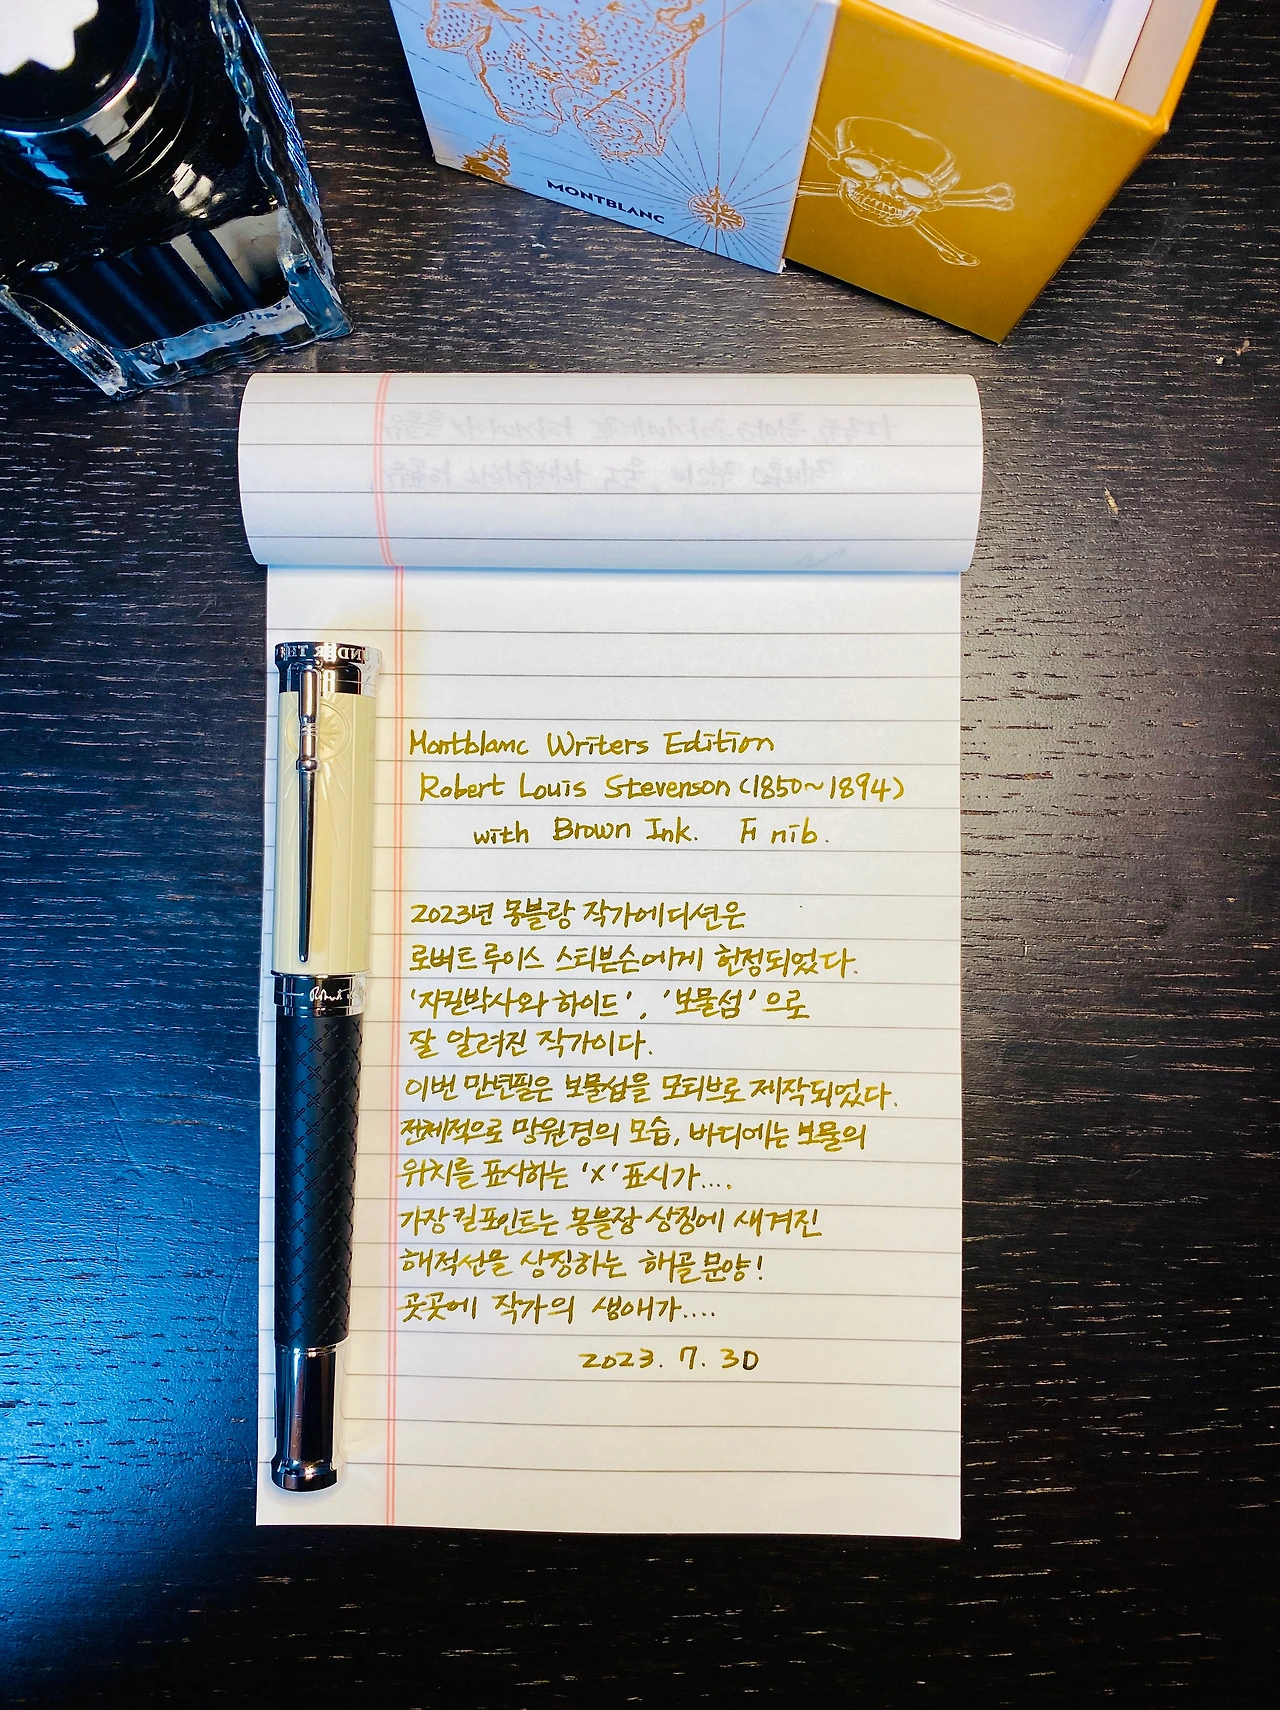 MONTBLANC
UNDER THE
Montblanc Writers Edition
Robert Louis Stevenson (1850~1894)
with Brown Ink. F nib.
2023년 몽블랑 작가에디션은
로버트 루이스 스티븐슨에게 헌정되었다.
'지킬박사와 하이드', '보물섬'으로
잘 알려진 작가이다.
이번 만년필은 보물섬을 모티브로 제작되었다.
전체적으로 망원경의 모습, 바디에는 보물의
위치를 표시하는 'X' 표시가....
가장 킬포인트는 몽블랑 상징에 새겨진
해적선을 상징하는 해골문양!
곳곳에 작가의 생애가....
2023. 7. 30